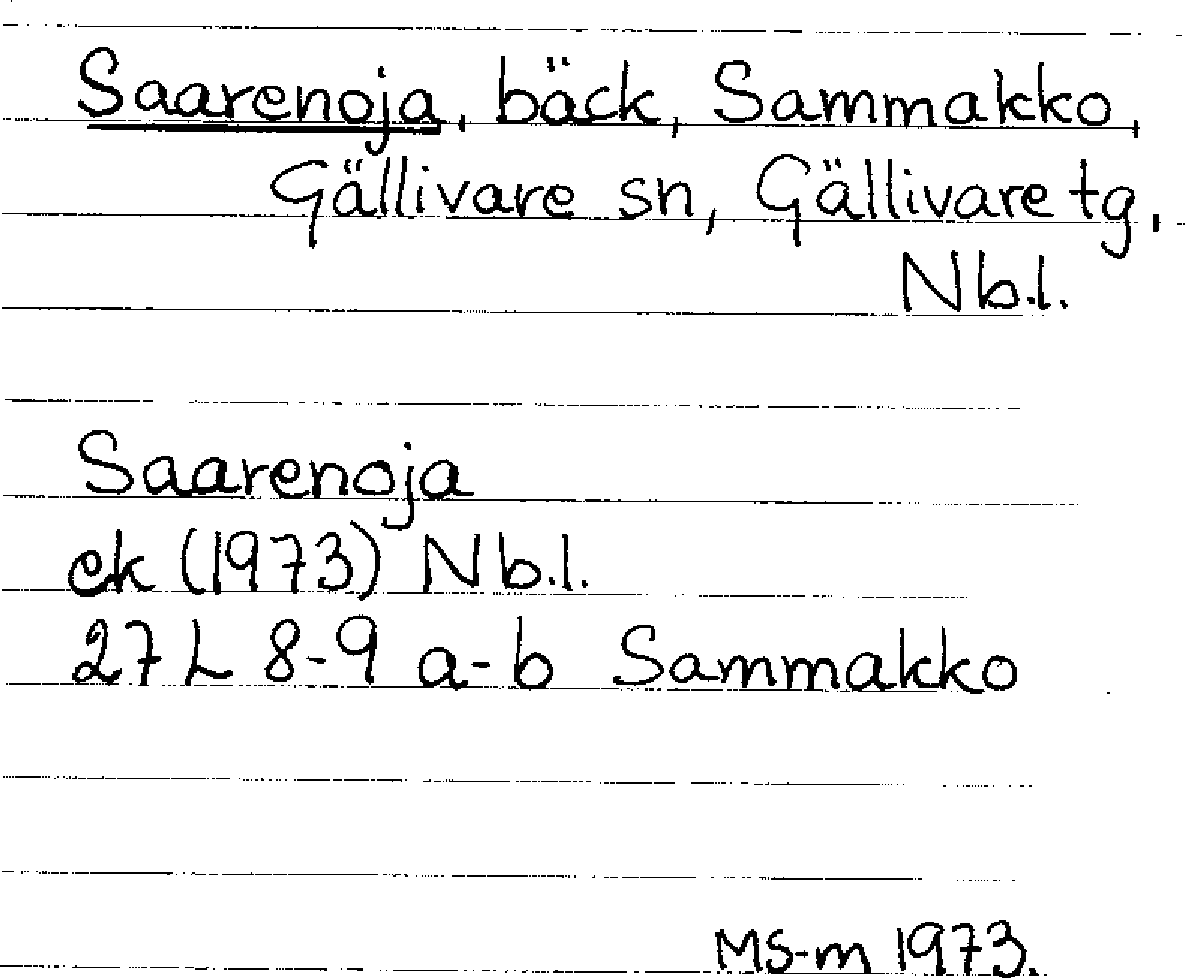 Saarenoja, bäck, Sammakko,
Gällivare sn, Gällivare tg,
Nb.l.
Saarenoja
ek (1973) Nb.l.
27 L 8-9 a-b Sammakko
MS-m 1973.